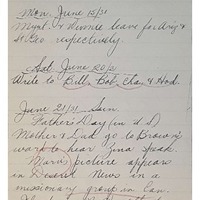 Mon. June 15/31
Myrl & Vinnie leave for Ariz &
St. Geo respectively.
Sat June 20/31
Write to Bill, Bob, Clar, & Hod
June 21/31 Sun.
Father's Day (in U.S.)
Mother & Dad go to Brown
ward to hear Zina speak.
Marv's picture appears
in Deseret News in a
missionary group in Can.